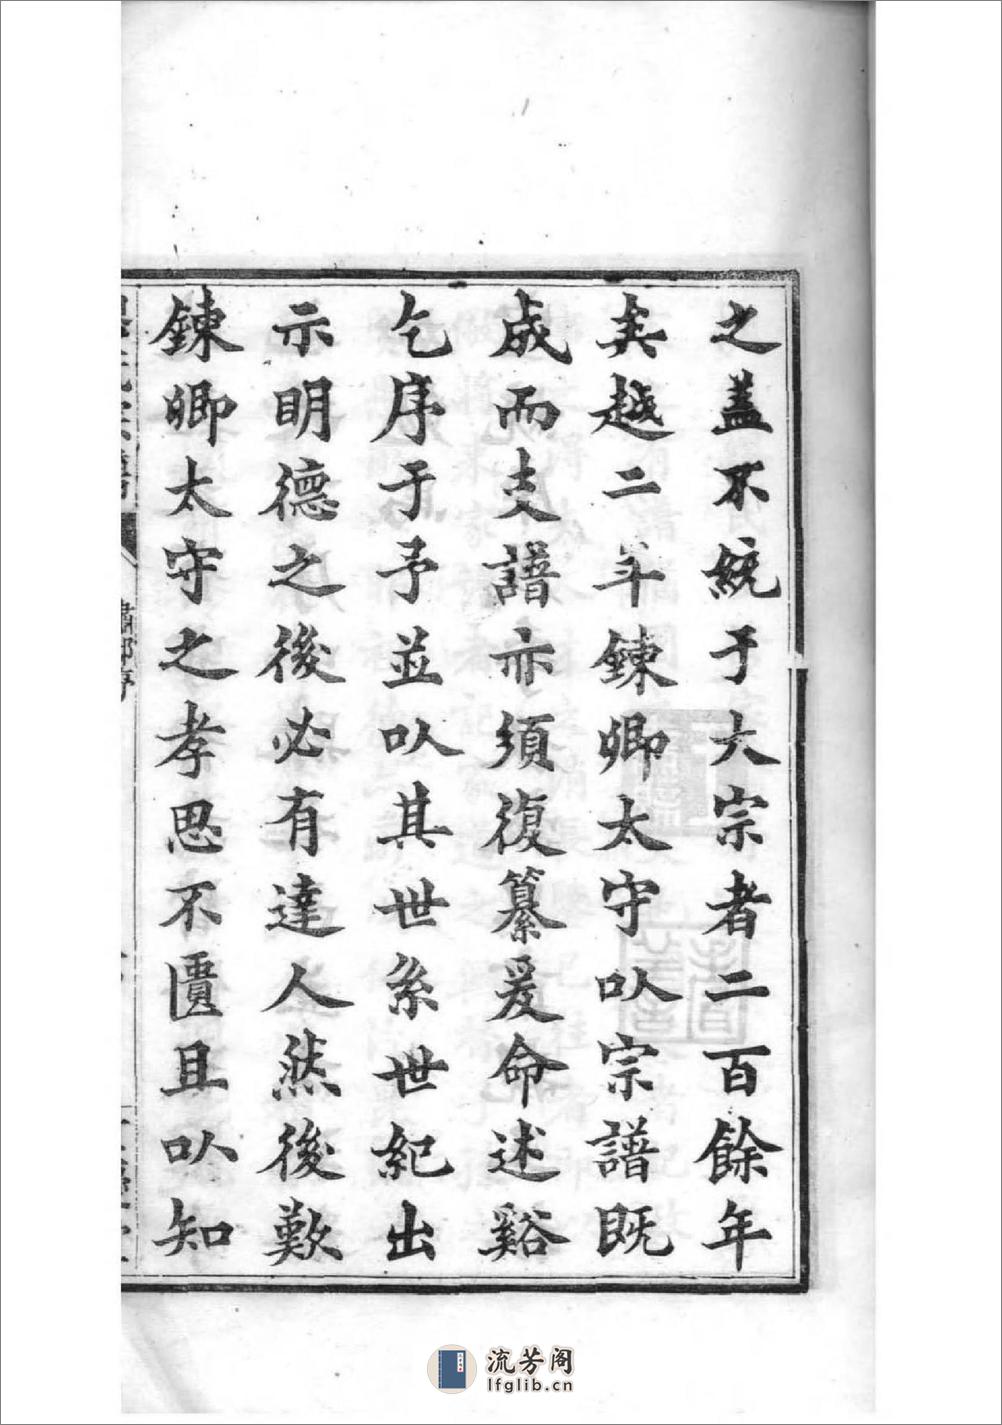 之蓋不統于大宗者二百餘年
矣越二年鍊卿太守以宗譜既
成而支譜亦須復纂爰命述谿
乞序于予並以其世系世紀出
示明德之後必有達人然後歎
鍊卿太守之孝思不匱且以知
流芳阁
lfglib.cn